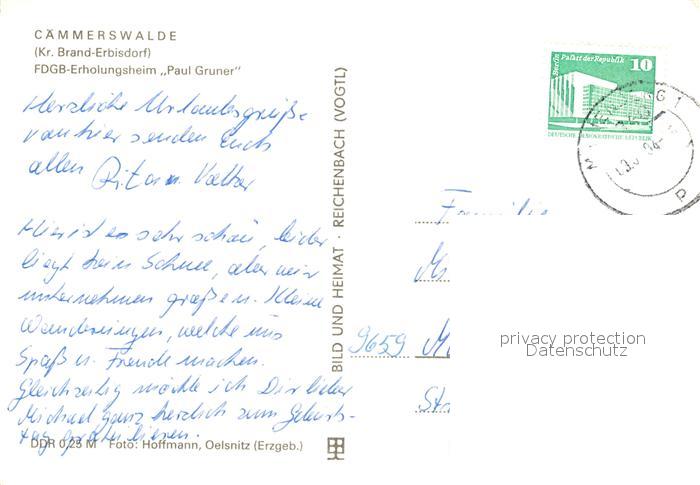 CÄMMERSWALDE
(Kr. Brand-Erbisdorf)
FDGB-Erholungsheim „Paul Gruner"
Herzliche Urlaubsgrüße
von hier senden Euch
allen Rita u. Volker
Hier ist es sehr schön, leider
liegt kein Schnee, aber wir
unternehmen große u. kleine
Wanderungen, welche uns
Spaß u. Freude machen.
Gleichzeitig möchte ich Dir lieber
Michael ganz herzlich zum Geburts-
tag gratulieren.
DDR 0,25 M Foto: Hoffmann, Oelsnitz (Erzgeb.)
BILD UND HEIMAT · REICHENBACH (VOGTL)
Berlin Palast der Republik
10
DEUTSCHE DEMOKRATISCHE REPUBLIK
Familie
9659
Str
privacy protection
Datenschutz